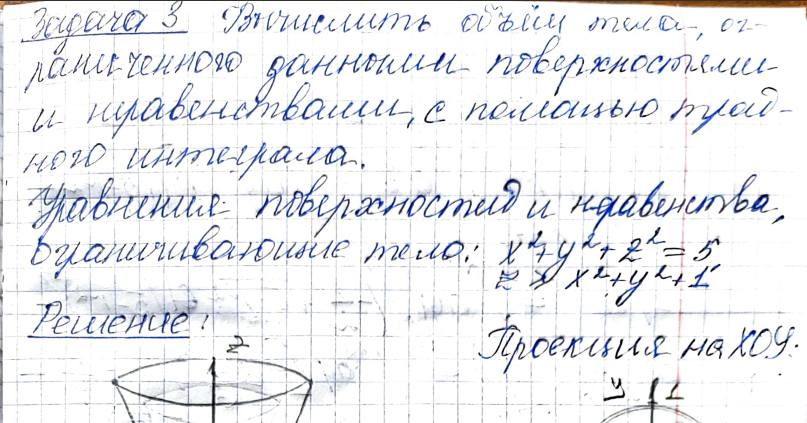 Задача 3 Вычислить объём тела, ог-
раниченного данными поверхностями
и неравенствами, с помощью трой-
ного интеграла.
Уравнения поверхностей и неравенства,
ограничивающие тело: x²+y²+z²=5
z > x²+y²+1
Решение:
Z
Проекция на XOY:
y 1